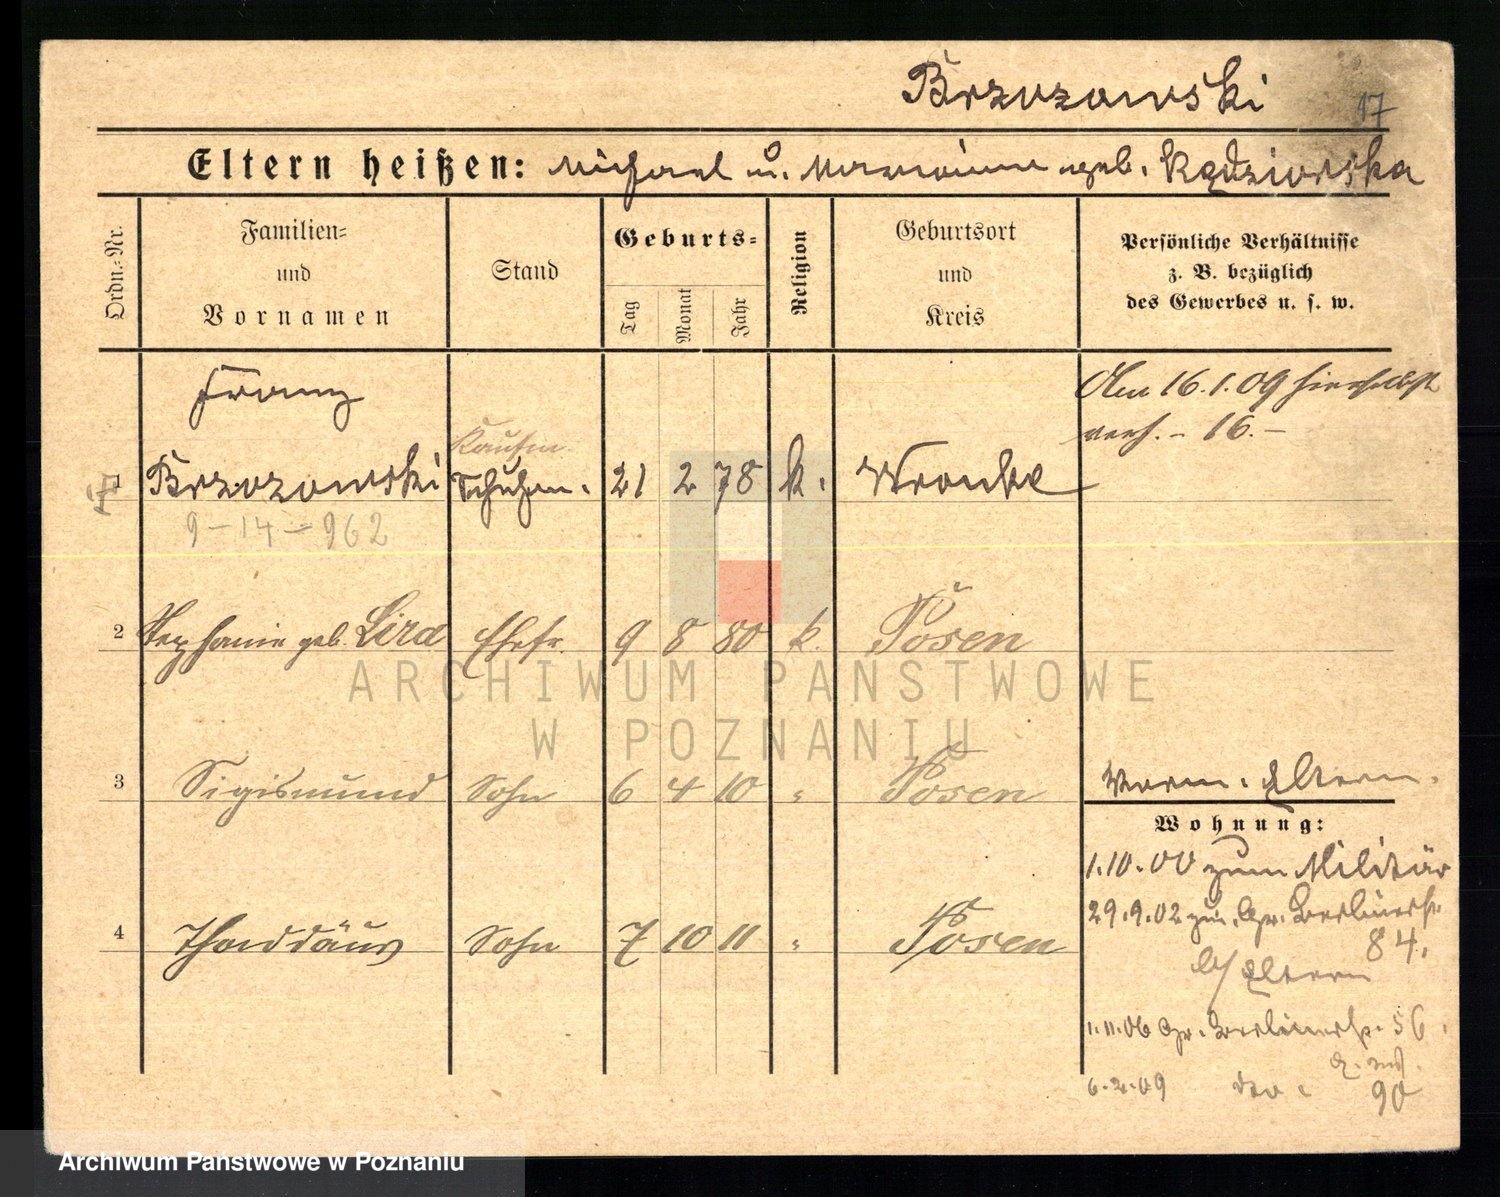 Brzozowski
17
Eltern heißen: Michael u. Marianna geb. Kędziorska
Ordn.-Nr.
Familien-
und
Vornamen
Stand
Geburts-
Tag
Monat
Jahr
Religion
Geburtsort
und
Kreis
Persönliche Verhältnisse
z. B. bezüglich
des Gewerbes u. s. w.
Franz
Am 16.1.09 hierselbst
verh. - 16. -
Kaufm.
1 Brzozowski Schuhm. 21 2 78 k. Wronke
9-14-962
2 Stephanie geb. Lira Ehefr. 9 8 80 k. Posen
ARCHIWUM PAŃSTWOWE
W POZNANIU
3 Sigismund Sohn 6 4 10 " Posen
Eltern.
Wohnung:
1.10.00 zum Militär
29.9.02 Gr. Berlinerstr.
84.
b/ Eltern
4 Thaddäus Sohn 7 10 11 " Posen
1.11.06 Gr. Berlinerstr. 56.
6.2.09 90
Archiwum Państwowe w Poznaniu